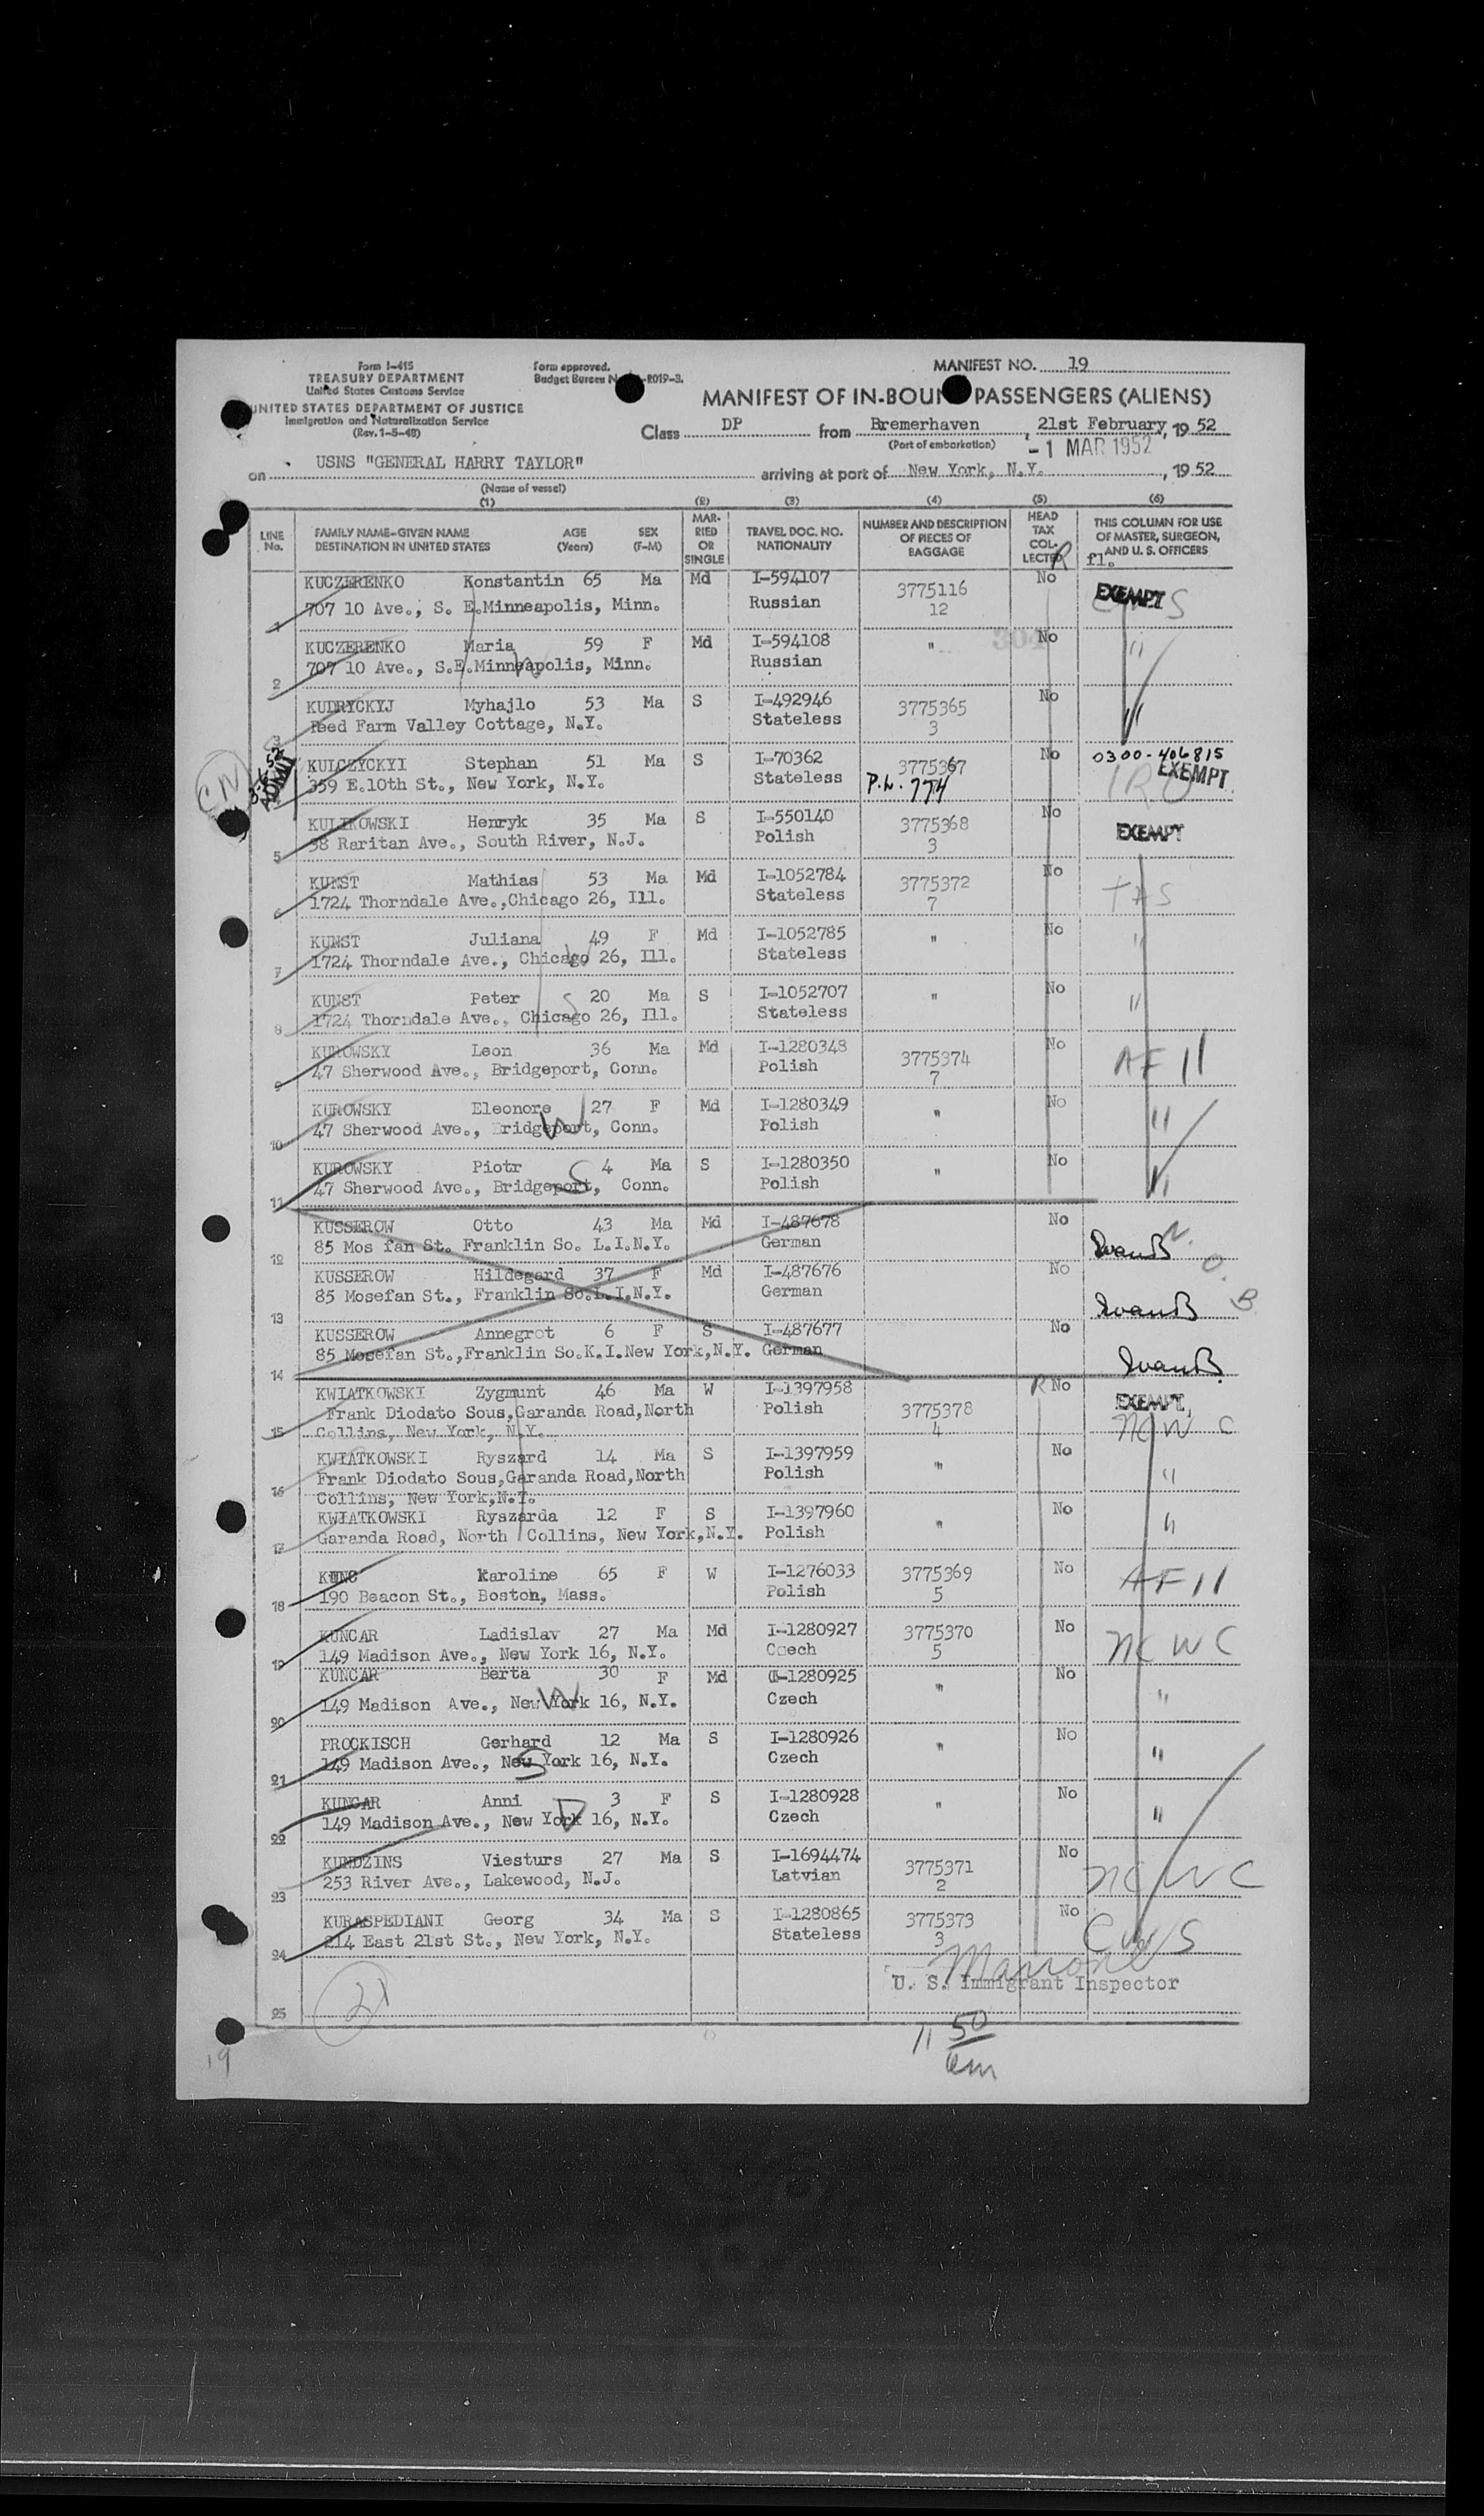 Form I-415
TREASURY DEPARTMENT
United States Customs Service
UNITED STATES DEPARTMENT OF JUSTICE
Immigration and Naturalization Service
(Rev. 1-5-48)
Form approved.
Budget Bureau N -R019-3.
MANIFEST NO. 19
MANIFEST OF IN-BOUN PASSENGERS (ALIENS)
Class DP from Bremerhaven, 21st February, 19 52
(Port of embarkation)
-1 MAR 1952
on USNS "GENERAL HARRY TAYLOR" arriving at port of New York, N.Y., 19 52
(Name of vessel)
(1) (2) (3) (4) (5) (6)
LINE No. FAMILY NAME-GIVEN NAME DESTINATION IN UNITED STATES AGE (Years) SEX (F-M) MARRIED OR SINGLE TRAVEL DOC. NO. NATIONALITY NUMBER AND DESCRIPTION OF PIECES OF BAGGAGE HEAD TAX COLLECTED THIS COLUMN FOR USE OF MASTER, SURGEON, AND U. S. OFFICERS
R fl.
KUCZERENKO Konstantin 65 Ma Md I-594107 3775116 No EXEMPT
1 707 10 Ave., S. E.Minneapolis, Minn. Russian 12
KUCZERENKO Maria 59 F Md I-594108 " No "
2 707 10 Ave., S.E.Minneapolis, Minn. Russian
KUDRYCKYJ Myhajlo 53 Ma S I-492946 3775365 No "
3 Reed Farm Valley Cottage, N.Y. Stateless 3
CN ADMIT
KULCZYCKYI Stephan 51 Ma S I-70362 3775367 No 0300-406815
359 E.10th St., New York, N.Y. Stateless P.L. 774 IRO EXEMPT
KULIKOWSKI Henryk 35 Ma S I-550140 3775368 No EXEMPT
5 38 Raritan Ave., South River, N.J. Polish 3
KUNST Mathias 53 Ma Md I-1052784 3775372 No
6 1724 Thorndale Ave.,Chicago 26, Ill. Stateless 7
KUNST Juliana 49 F Md I-1052785 " No "
7 1724 Thorndale Ave., Chicago 26, Ill. Stateless
KUNST Peter S 20 Ma S I-1052707 " No "
8 1724 Thorndale Ave., Chicago 26, Ill. Stateless
KUROWSKY Leon 36 Ma Md I-1280348 3775374 No AF 11
9 47 Sherwood Ave., Bridgeport, Conn. Polish 7
KUROWSKY Eleonore W 27 F Md I-1280349 " No "
10 47 Sherwood Ave., Bridgeport, Conn. Polish
KUROWSKY Piotr S 4 Ma S I-1280350 " No "
11 47 Sherwood Ave., Bridgeport, Conn. Polish
KUSSEROW Otto 43 Ma Md I-487678 No
12 85 Mos fan St. Franklin So. L.I.N.Y. German N.
KUSSEROW Hildegard 37 F Md I-487676 No O.
13 85 Mosefan St., Franklin So.L.I.N.Y. German B.
KUSSEROW Annegret 6 F S I-487677 No
14 85 Mosefan St.,Franklin So.K.I.New York,N.Y. German
KWIATKOWSKI Zygmunt 46 Ma W I-1397958 R No EXEMPT
Frank Diodato Sous,Garanda Road,North Polish 3775378
15 Collins, New York, N.Y. 4 NCWC
KWIATKOWSKI Ryszard 14 Ma S I-1397959 " No "
Frank Diodato Sous,Garanda Road,North Polish
16 Collins, New York,N.Y.
KWIATKOWSKI Ryszarda 12 F S I-1397960 " No "
17 Garanda Road, North Collins, New York,N.Y. Polish
KUNC Karoline 65 F W I-1276033 3775369 No AF 11
18 190 Beacon St., Boston, Mass. Polish 5
KUNCAR Ladislav 27 Ma Md I-1280927 3775370 No NCWC
19 149 Madison Ave., New York 16, N.Y. Czech 5
KUNCAR Berta 30 F Md I-1280925 " No "
20 149 Madison Ave., New York 16, N.Y. W Czech
PROCKISCH Gerhard 12 Ma S I-1280926 " No "
21 149 Madison Ave., New York 16, N.Y. S Czech
KUNCAR Anni 3 F S I-1280928 " No "
22 149 Madison Ave., New York 16, N.Y. D Czech
KUNDZINS Viesturs 27 Ma S I-1694474 3775371 No NCWC
23 253 River Ave., Lakewood, N.J. Latvian 2
KURASPEDIANI Georg 34 Ma S I-1280865 3775373 No CWS
24 214 East 21st St., New York, N.Y. Stateless 3
21 U. S. Immigrant Inspector
25
11 50
19